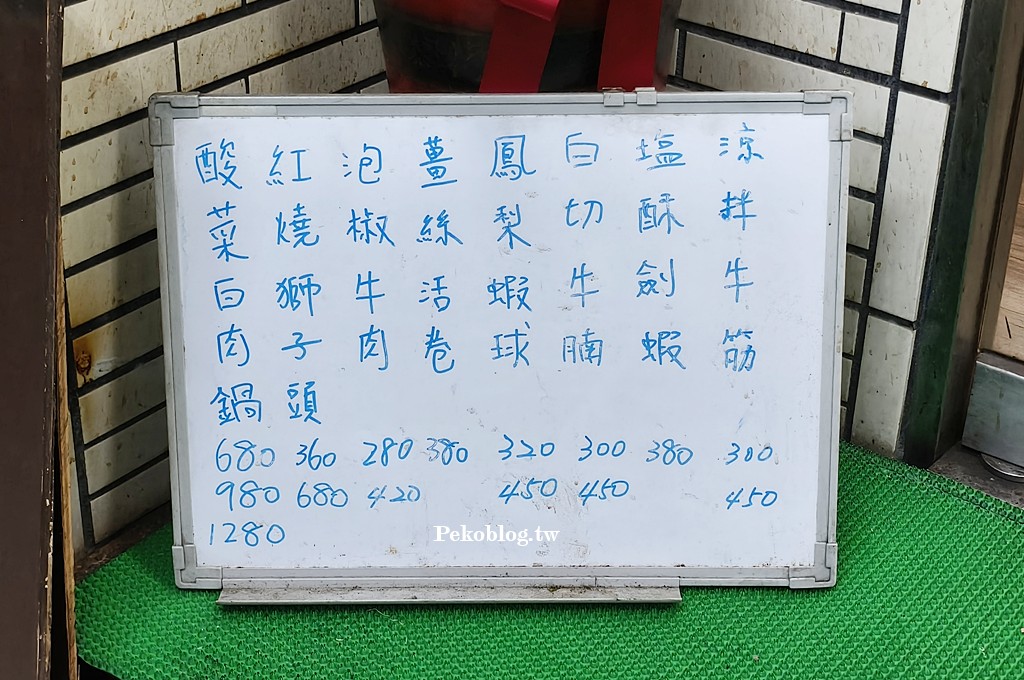 涼拌牛筋
塩酥劍蝦
白切牛腩
鳳梨蝦球
薑絲活卷
泡椒牛肉
紅燒獅子頭
酸菜白肉鍋
680 360 280 380 320 300 380 300
980 680 420 450 450 450
1280
Pekoblog.tw